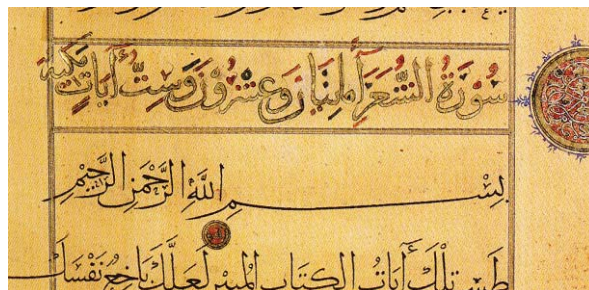 سُورَةُ الشُّعَرَآءِ مِائَتَانِ وَعِشْرُونَ وَسِتُّ آيَاتٍ مَكِّيَّة
بِسْمِ اللَّهِ الرَّحْمَنِ الرَّحِيمِ
طسم تِلْكَ آيَاتُ الْكِتَابِ الْمُبِينِ لَعَلَّكَ بَاخِعٌ نَفْسَكَ